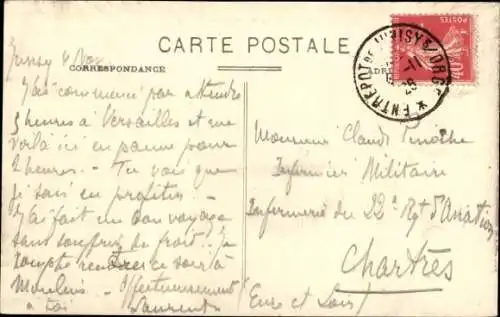 CARTE POSTALE
CORRESPONDANCE
ADRE
POSTES
ENTREPOT DE JUVISY S/ ORGE
Juvisy 4 Nov
J'ai commencé par attendre
5 heures à Versailles et me
voilà ici en panne pour
2 heures. - Tu vois que
je sais en profiter.
J'ai fait un bon voyage
sans souffrir de froid! Je
compte ce soir à
Moulins. Affectueusement
à toi Laurent
Monsieur Claude
Infirmier Militaire
Infirmerie du 22e Rgt d'Aviation
Chartres
(Eure et Loir)